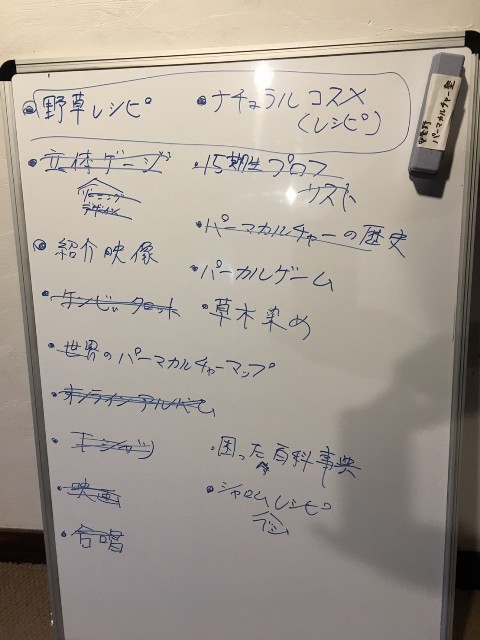 野草レシピ
立体ゲージ
ゾーニング
デザイン
紹介映像
世界のパーマカルチャーマップ
オンラインアルバム
Tシャツ
映画
合唱
ナチュラルコスメ
(レシピ)
15期生プロフ
リスト
パーマカルチャーの歴史
パーカルゲーム
草木染め
困った百科事典
シャロムレシピ
パーマカルチャー塾